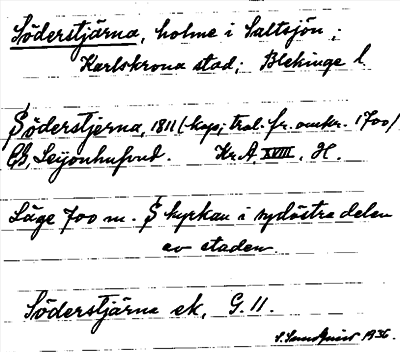 Söderstjärna, holme i Saltsjön;
Karlskrona stad; Blekinge l.
Söderstjerna, 1811 (kop; trol. fr. omkr. 1700)
Leijonhufvud. Kr.A. XVIII. H.
Läge 700 m. S kyrkan i sydöstra delen
av staden.
Söderstjärna ek, G. 11.
S. Sundquist 1936.